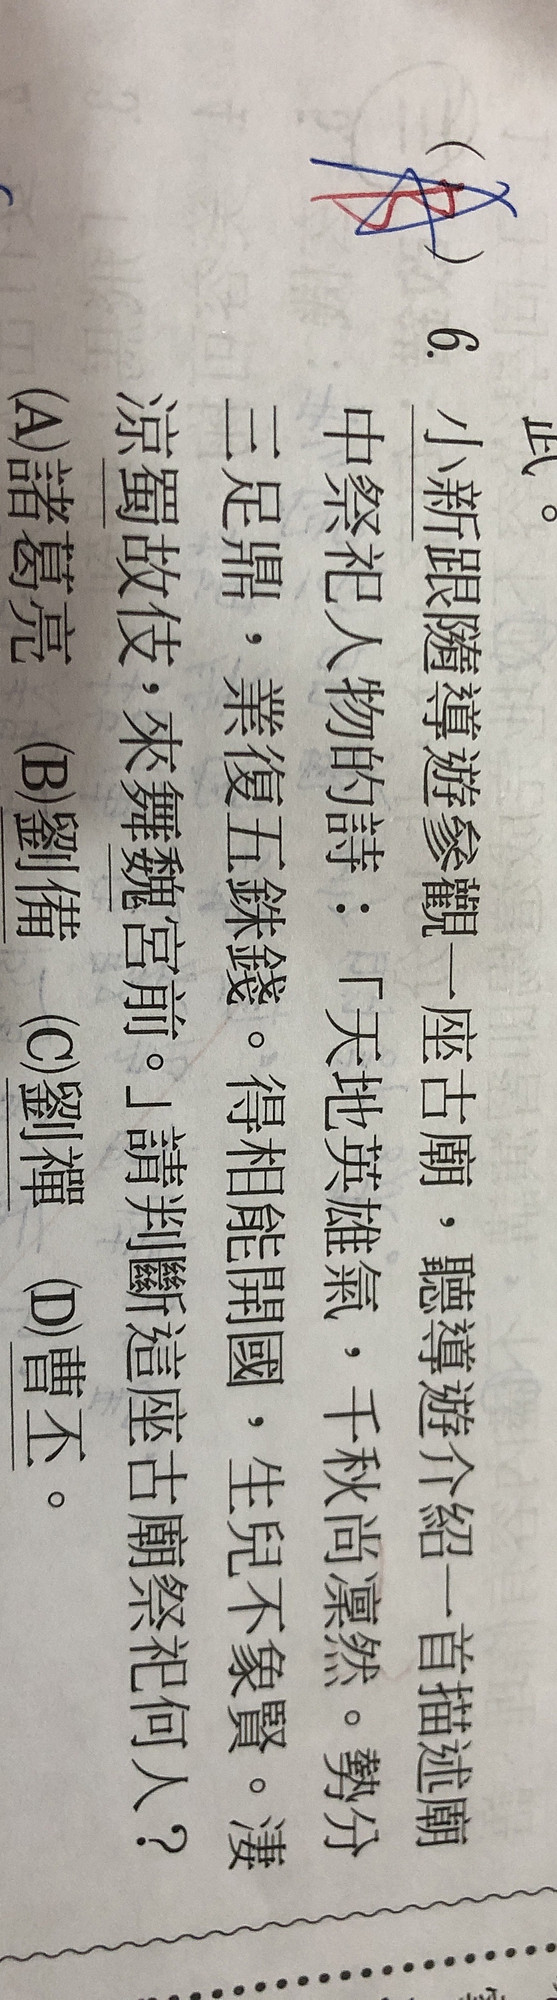 武。
( B ) 6. 小新跟隨導遊參觀一座古廟，聽導遊介紹一首描述廟
中祭祀人物的詩：「天地英雄氣，千秋尚凜然。勢分
三足鼎，業復五銖錢。得相能開國，生兒不象賢。淒
涼蜀故伎，來舞魏宮前。」請判斷這座古廟祭祀何人？
(A)諸葛亮 (B)劉備 (C)劉禪 (D)曹丕。